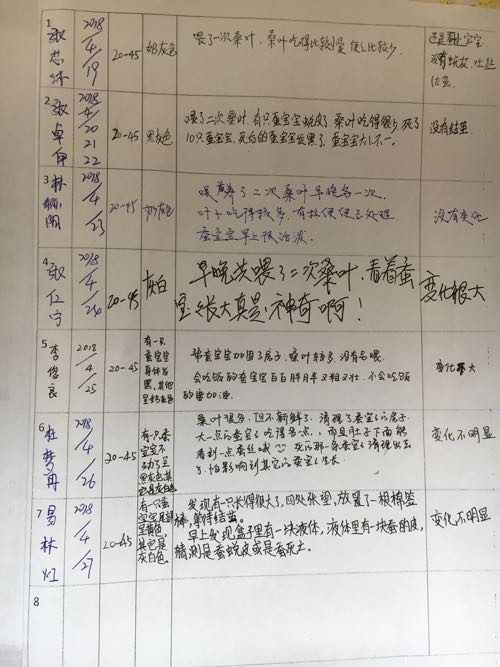 1
2018
4
19
20-45
奶灰色
喂了一次桑叶，桑叶吃得比较慢，便便比较少。
还是蚕宝宝
没有蜕皮、吐丝
结茧。
2
2018
4
20
21
22
20-45
黑灰色
喂了二次桑叶，有只蚕宝宝蜕皮了，桑叶吃得很少，死了
10只蚕宝宝，死的蚕宝宝发黑了，蚕宝宝大小不一。
没有结茧
3
林
阳
2018
4
23
20-45
奶灰色
喂养了二次桑叶早晚各一次，
叶子吃得较多，有拉便便已处理
蚕宝宝早上很活泼。
没有变化
4
2018
4
24
20-45
灰白
早晚共喂了二次桑叶，看着蚕
宝长大真是神奇啊！
变化很大
5
李
俊
良
2018
4
25
20-45
有一只
蚕宝宝
身体发
黑，其他
呈奶灰色
帮蚕宝宝加固了房子，桑叶较多，没有后喂。
会吃饭的蚕宝宝白白胖胖又粗又壮，不会吃饭
的要加油。
变化不大
6
杜
梦
冉
2018
4
26
20-45
有一只蚕
宝宝不
动了呈
黑灰色其
它是灰白色
桑叶很多，但不新鲜了，清理了蚕宝宝的房子，
大一点的蚕宝宝吃得多一点，而且肚子下面能
看到一点蚕丝哦
死的那一条蚕宝宝清理出去
了，怕影响到其它的蚕宝宝生长。
变化不明显
7
易
林
灿
2018
4
27
20-45
有一只蚕
宝宝尾部
呈青色，
其它是
灰白色。
发现有一只长得很大了，四处张望，放置了一根棉签
棒，等待结茧。
早上发现盒子里有一块液体，液体里有一块蚕的皮，
猜测是蚕蜕皮或是蚕死亡。
变化不明显
8